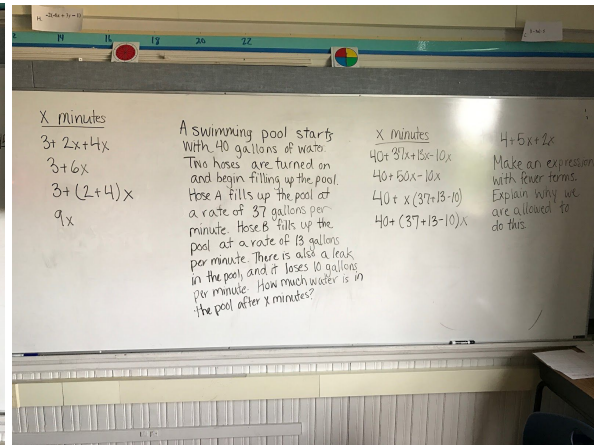 14 16 18 20 22
X minutes
3+ 2x+4x
3+6x
3+(2+4)x
9x
A swimming pool starts
with 40 gallons of water.
Two hoses are turned on
and begin filling up the pool.
Hose A fills up the pool at
a rate of 37 gallons per
minute. Hose B fills up the
pool at a rate of 13 gallons
per minute. There is also a leak
in the pool, and it loses 10 gallons
per minute. How much water is in
the pool after x minutes?
X minutes
40+37x+13x-10x
40+50x-10x
40+ x(37+13-10)
40+(37+13-10)x
4+5x+2x
Make an expression
with fewer terms.
Explain why we
are allowed to
do this.